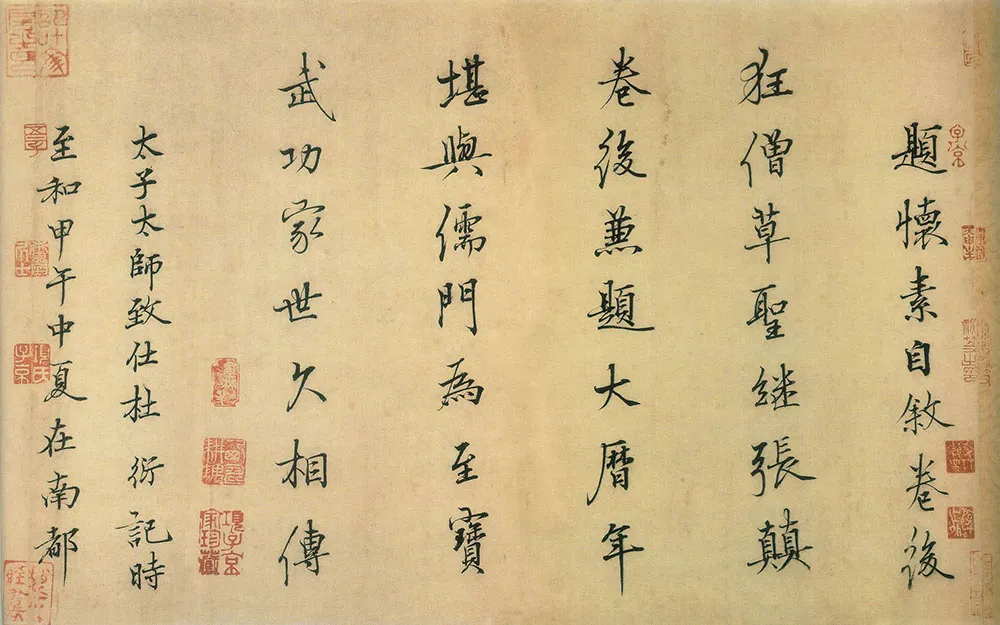 題懷素自敘卷後
狂僧草聖繼張顛
卷後兼題大曆年
堪與儒門為至寶
武功家世久相傳
太子太師致仕杜 衍記時
至和甲午中夏在南都